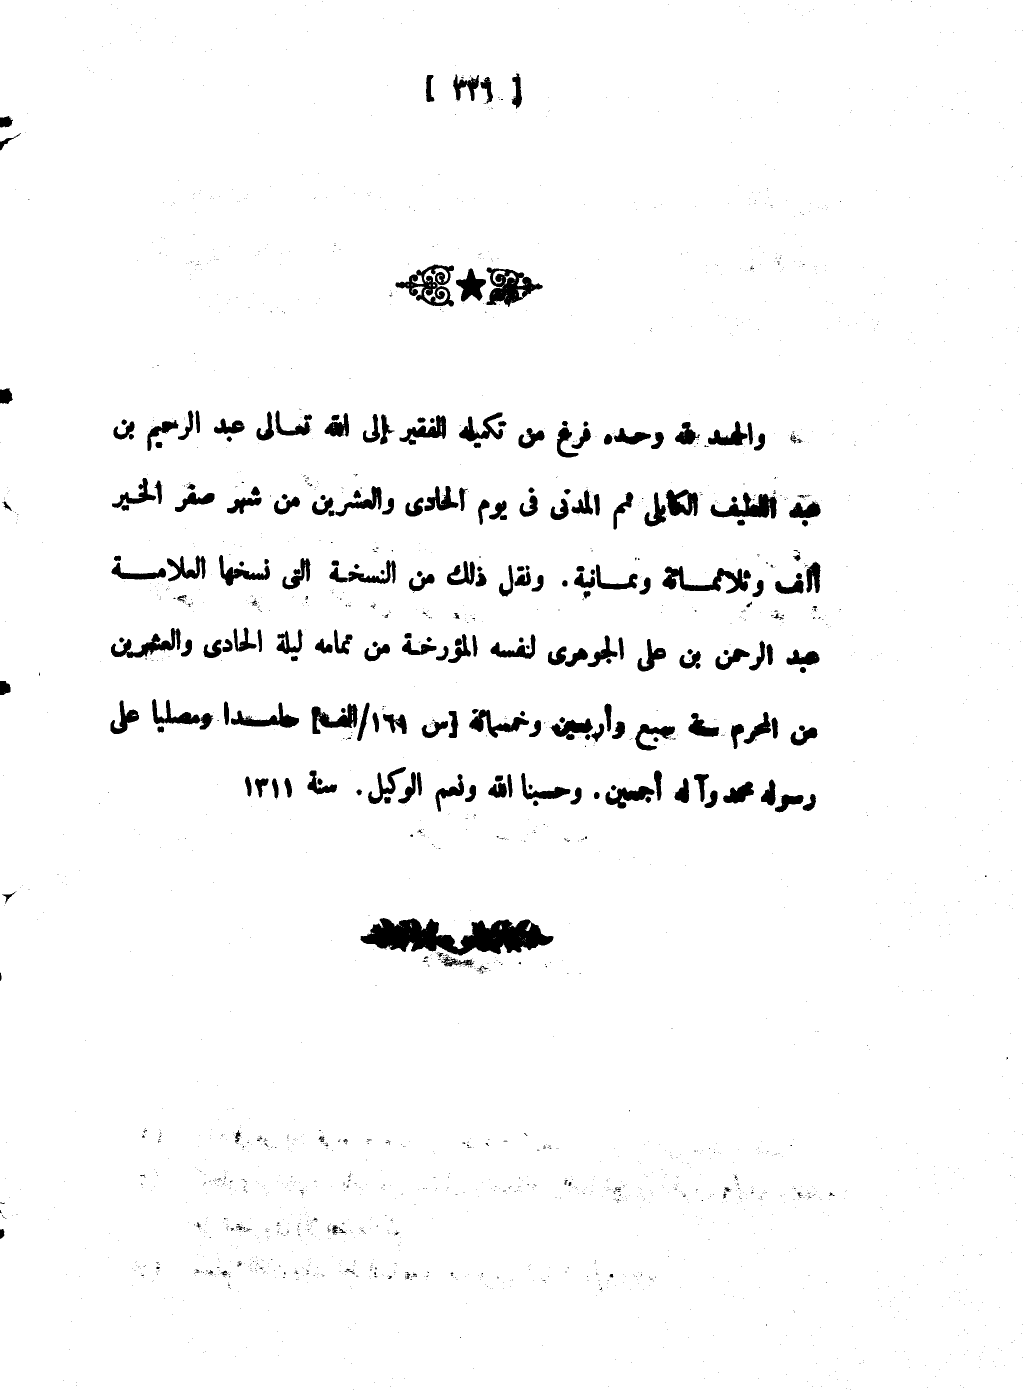 [ ٣٣٩ ]
والحمد لله وحده فرغ من تكميله الفقير إلى الله تعالى عبد الرحيم بن
عبد اللطيف الكابلى ثم المدنى فى يوم الحادى والعشرين من شهر صفر الخير
ألف وثلاثمائة وثمانية . ونقل ذلك من النسخة التى نسخها العلامة
عبد الرحمن بن على الجوهرى لنفسه المؤرخة من تمامه ليلة الحادى والعشرين
من المحرم سنة سبع وأربعين وخمسمائة [س ١٦٩/الف] حامدا ومصليا على
رسوله محمد وآله أجمعين . وحسبنا الله ونعم الوكيل . سنة ١٣١١